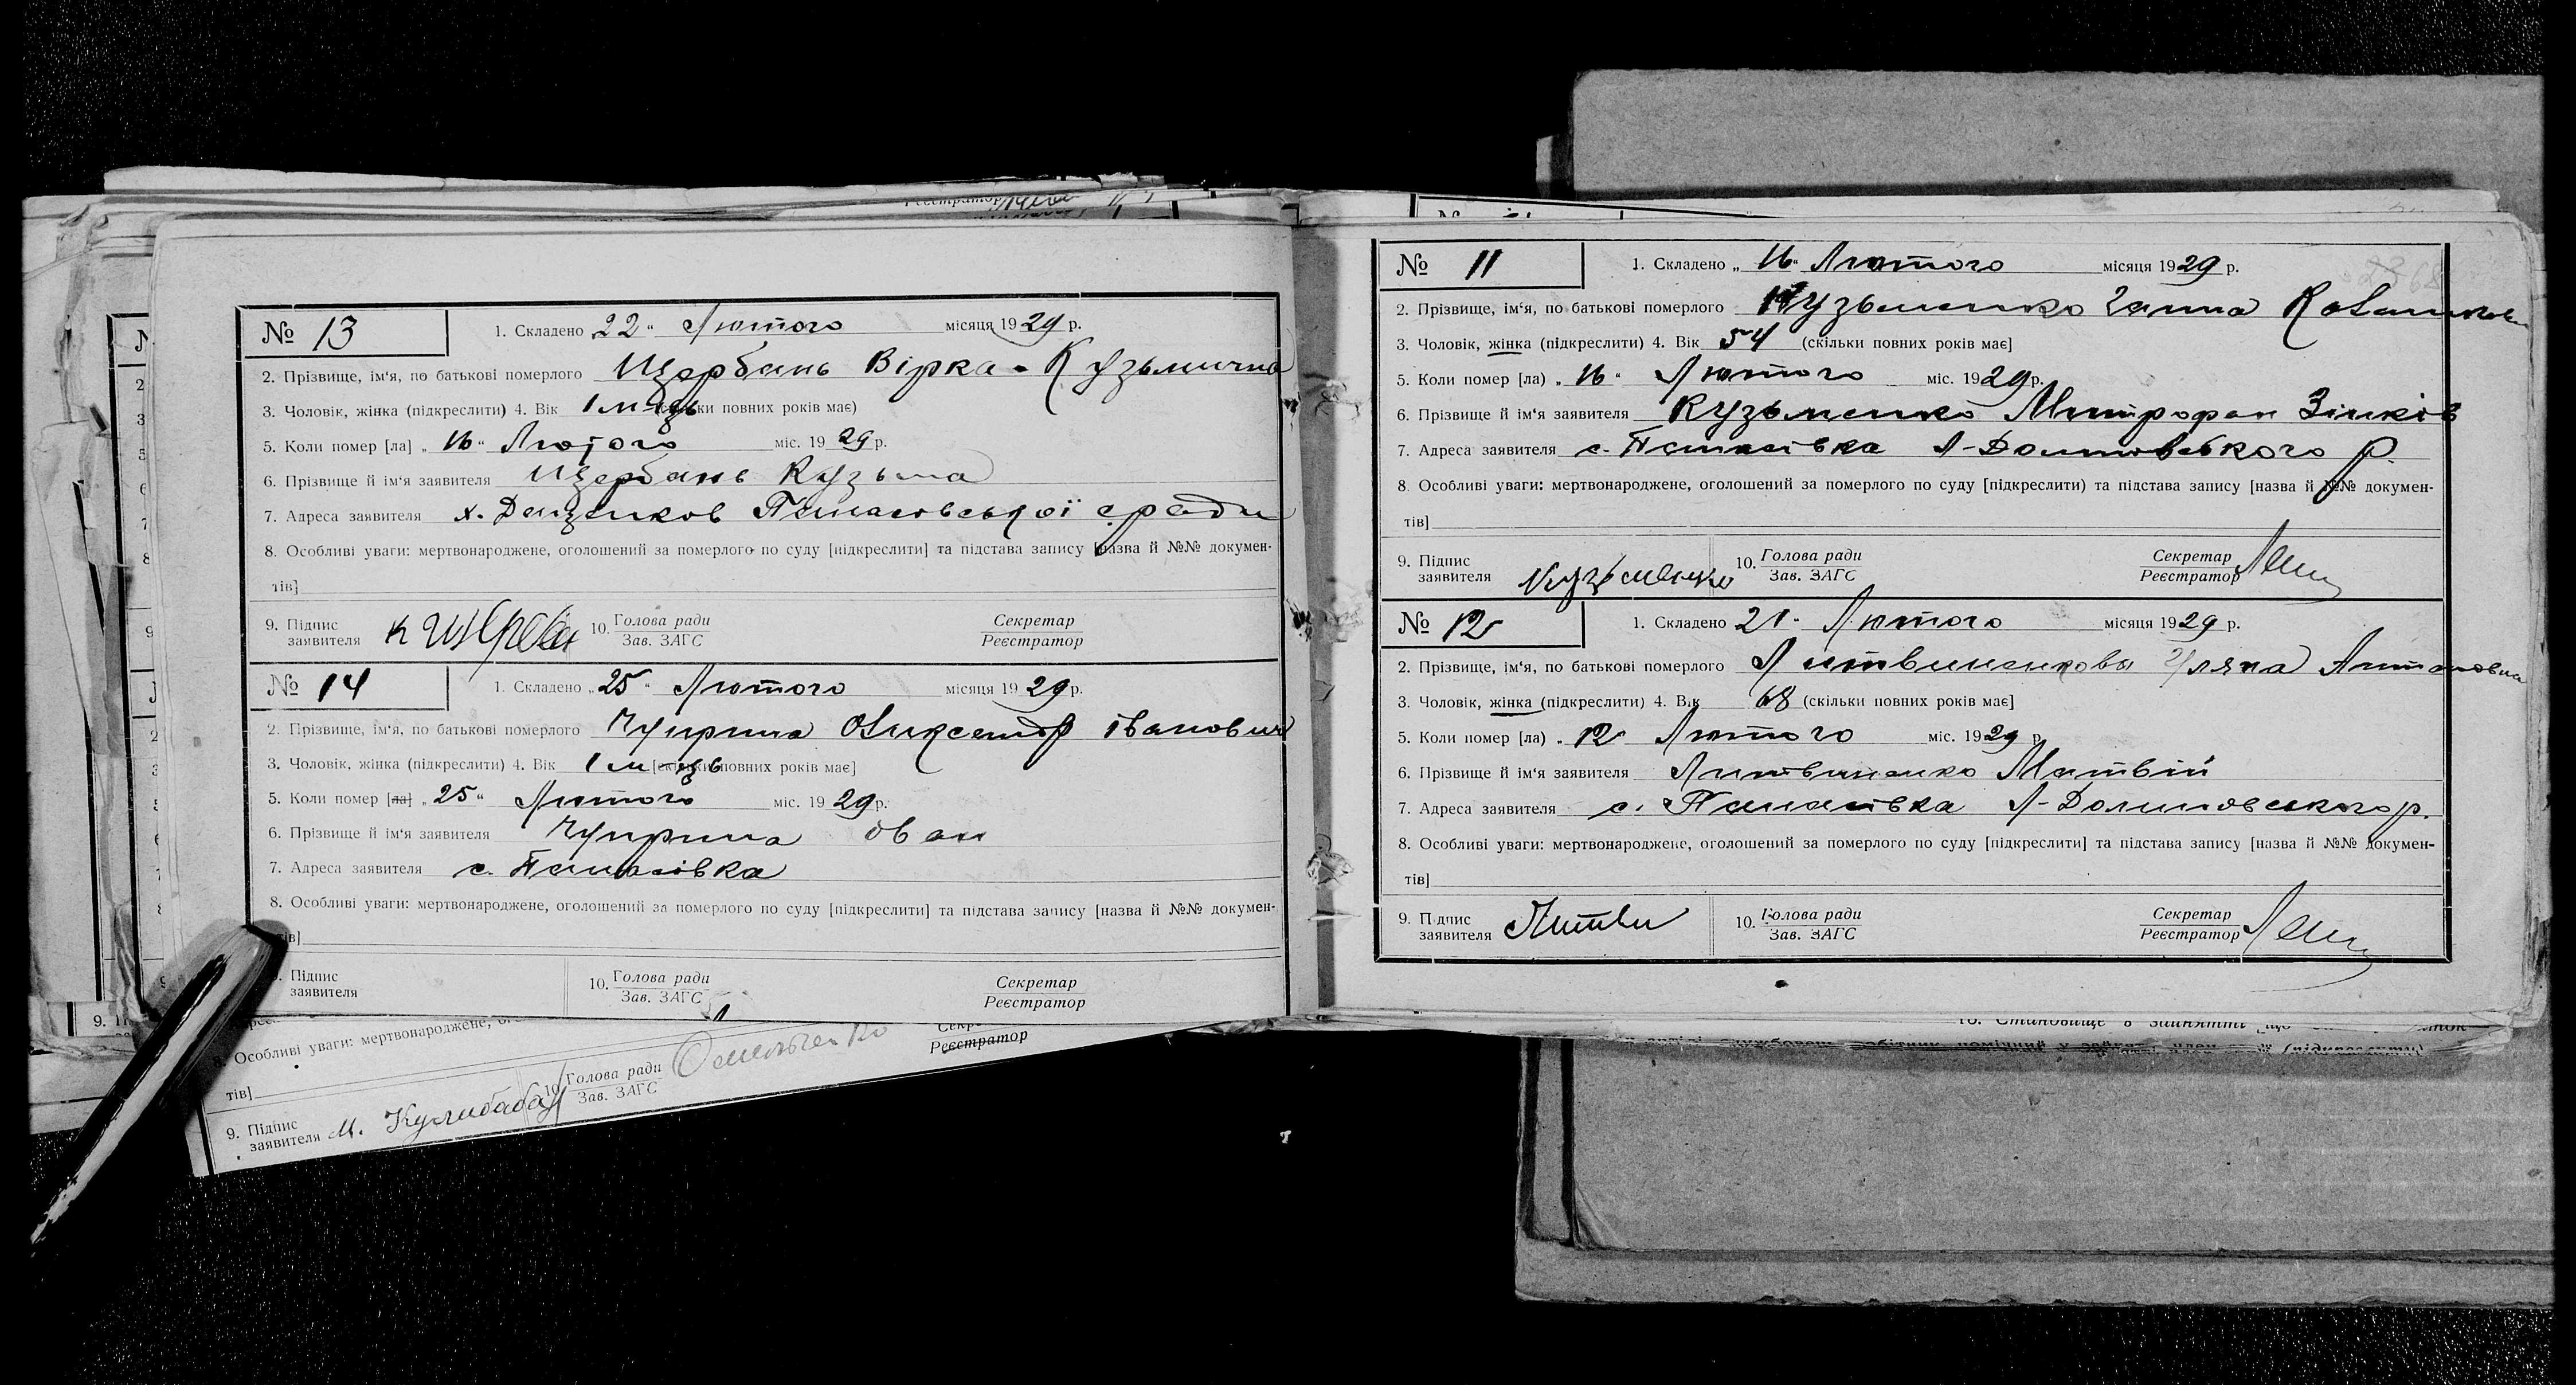 № 13
1. Складено 22 " Лютого місяця 1929 р.
2. Прізвище, ім'я, по батькові померлого Щербань Вірка - Кузьмична
3. Чоловік, жінка (підкреслити) 4. Вік 1 м-ць (скільки повних років має)
5. Коли помер [ла] „ 16 " Лютого міс. 1929 р.
6. Прізвище й ім'я заявителя Щербань Кузьма
7. Адреса заявителя х. Даценков с. ради
8. Особливі уваги: мертвонароджене, оголошений за померлого по суду [підкреслити] та підстава запису [назва й №№ докумен-
тів]
9. Підпис заявителя 10. Голова ради Зав. ЗАГС Секретар Реєстратор
№ 14
1. Складено „ 25 " Лютого місяця 1929 р.
2. Прізвище, ім'я, по батькові померлого Чуприна Олександр Іванович
3. Чоловік, жінка (підкреслити) 4. Вік 1 м-ць [скільки повних років має]
5. Коли помер [ла] „ 25 " Лютого міс. 1929 р.
6. Прізвище й ім'я заявителя Чуприна Іван
7. Адреса заявителя с. Панасівка
8. Особливі уваги: мертвонароджене, оголошений за померлого по суду [підкреслити] та підстава запису [назва й №№ докумен-
тів]
Підпис заявителя 10. Голова ради Зав. ЗАГС Секретар Реєстратор
8. Особливі уваги: мертвонароджене,
тів]
9. Підпис заявителя М. Кулибаба 10. Голова ради Зав. ЗАГС Омельченко Реєстратор
№ 11
1. Складено „ 16 " Лютого місяця 1929 р.
2. Прізвище, ім'я, по батькові померлого Кузьменко Ганна
3. Чоловік, жінка (підкреслити) 4. Вік 54 (скільки повних років має]
5. Коли помер [ла) „ 16 " Лютого міс. 1929 р.
6. Прізвище й ім'я заявителя Кузьменко Митрофан Зіньків
7. Адреса заявителя с. Панасівка Л-Долинського р.
8. Особливі уваги: мертвонароджене, оголошений за померлого по суду [підкреслити) та підстава запису [назва й №№ докумен-
тів]
9. Підпис заявителя Кузьменко 10. Голова ради Зав. ЗАГС Секретар Реєстратор
№ 12
1. Складено 21 " Лютого місяця 1929 р.
2. Прізвище, ім'я, по батькові померлого Литвиненкова Уляна Антоновна
3. Чоловік, жінка (підкреслити) 4. Вік 68 (скільки повних років має]
5. Коли помер [ла) „ 12 Лютого міс. 1929 р.
6. Прізвище й ім'я заявителя Литвиненко Матвій
7. Адреса заявителя с. Панасівка Л-Долиновського р.
8. Особливі уваги: мертвонароджене, оголошений за померлого по суду [підкреслити] та підстава запису [назва й №№ докумен-
тів]
9. Підпис заявителя Литви 10. Голова ради Зав. ЗАГС Секретар Реєстратор